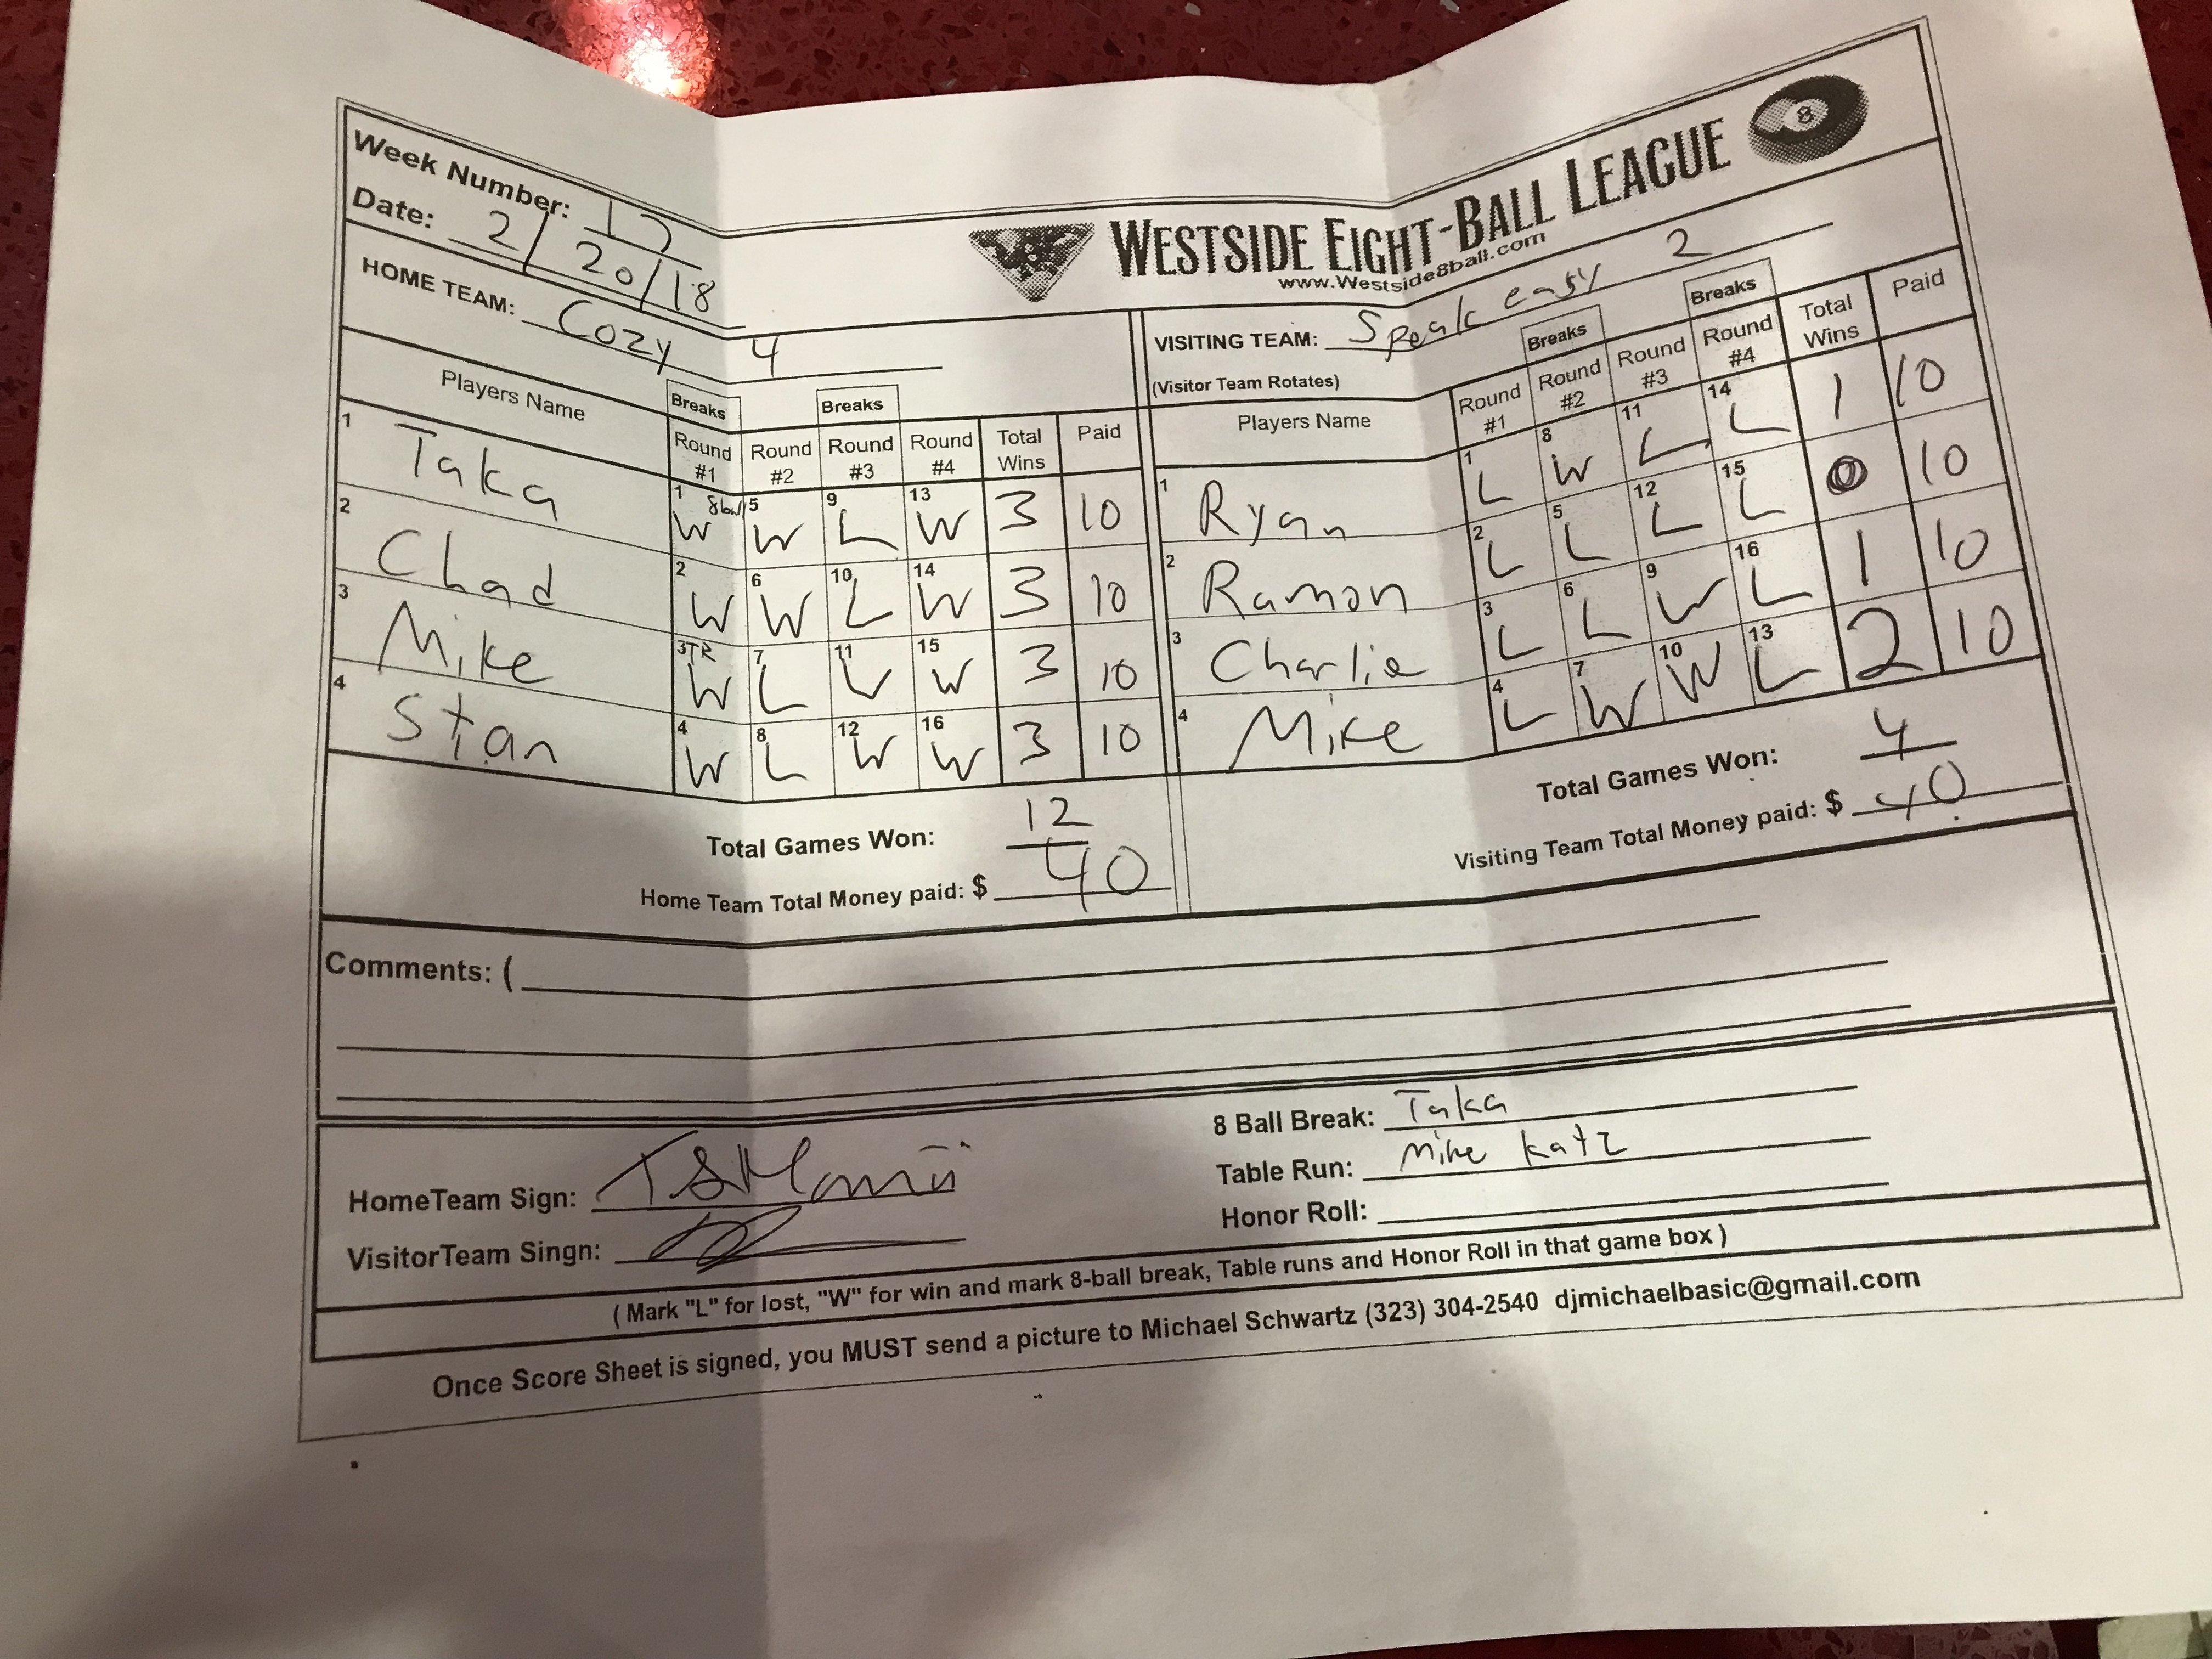 Week Number: 17
Date: 2/20/18
WESTSIDE EIGHT-BALL LEAGUE 8
www.Westside8ball.com
HOME TEAM: Cozy 4
Players Name Breaks Breaks
Round #1 Round #2 Round #3 Round #4 Total Wins Paid
1 Taka 1 W 5 W 9 L 13 W 3 10
2 Chad 2 W 6 W 10 L 14 W 3 10
3 Mike 3 TR W 7 L 11 W 15 W 3 10
4 Stan 4 W 8 L 12 W 16 W 3 10
Total Games Won: 12
Home Team Total Money paid: $ 40
VISITING TEAM: Speak easy 2
(Visitor Team Rotates) Breaks Breaks
Players Name Round #1 Round #2 Round #3 Round #4 Total Wins Paid
1 Ryan 1 L 8 W 11 L 14 L 1 10
2 Ramon 2 L 5 L 12 L 15 L 0 10
3 Charlie 3 L 6 L 9 W 16 L 1 10
4 Mike 4 L 7 W 10 W 13 L 2 10
Total Games Won: 4
Visiting Team Total Money paid: $ 40
Comments: (
HomeTeam Sign:
VisitorTeam Singn:
8 Ball Break: Taka
Table Run: Mike Katz
Honor Roll:
( Mark "L" for lost, "W" for win and mark 8-ball break, Table runs and Honor Roll in that game box )
Once Score Sheet is signed, you MUST send a picture to Michael Schwartz (323) 304-2540 djmichaelbasic@gmail.com